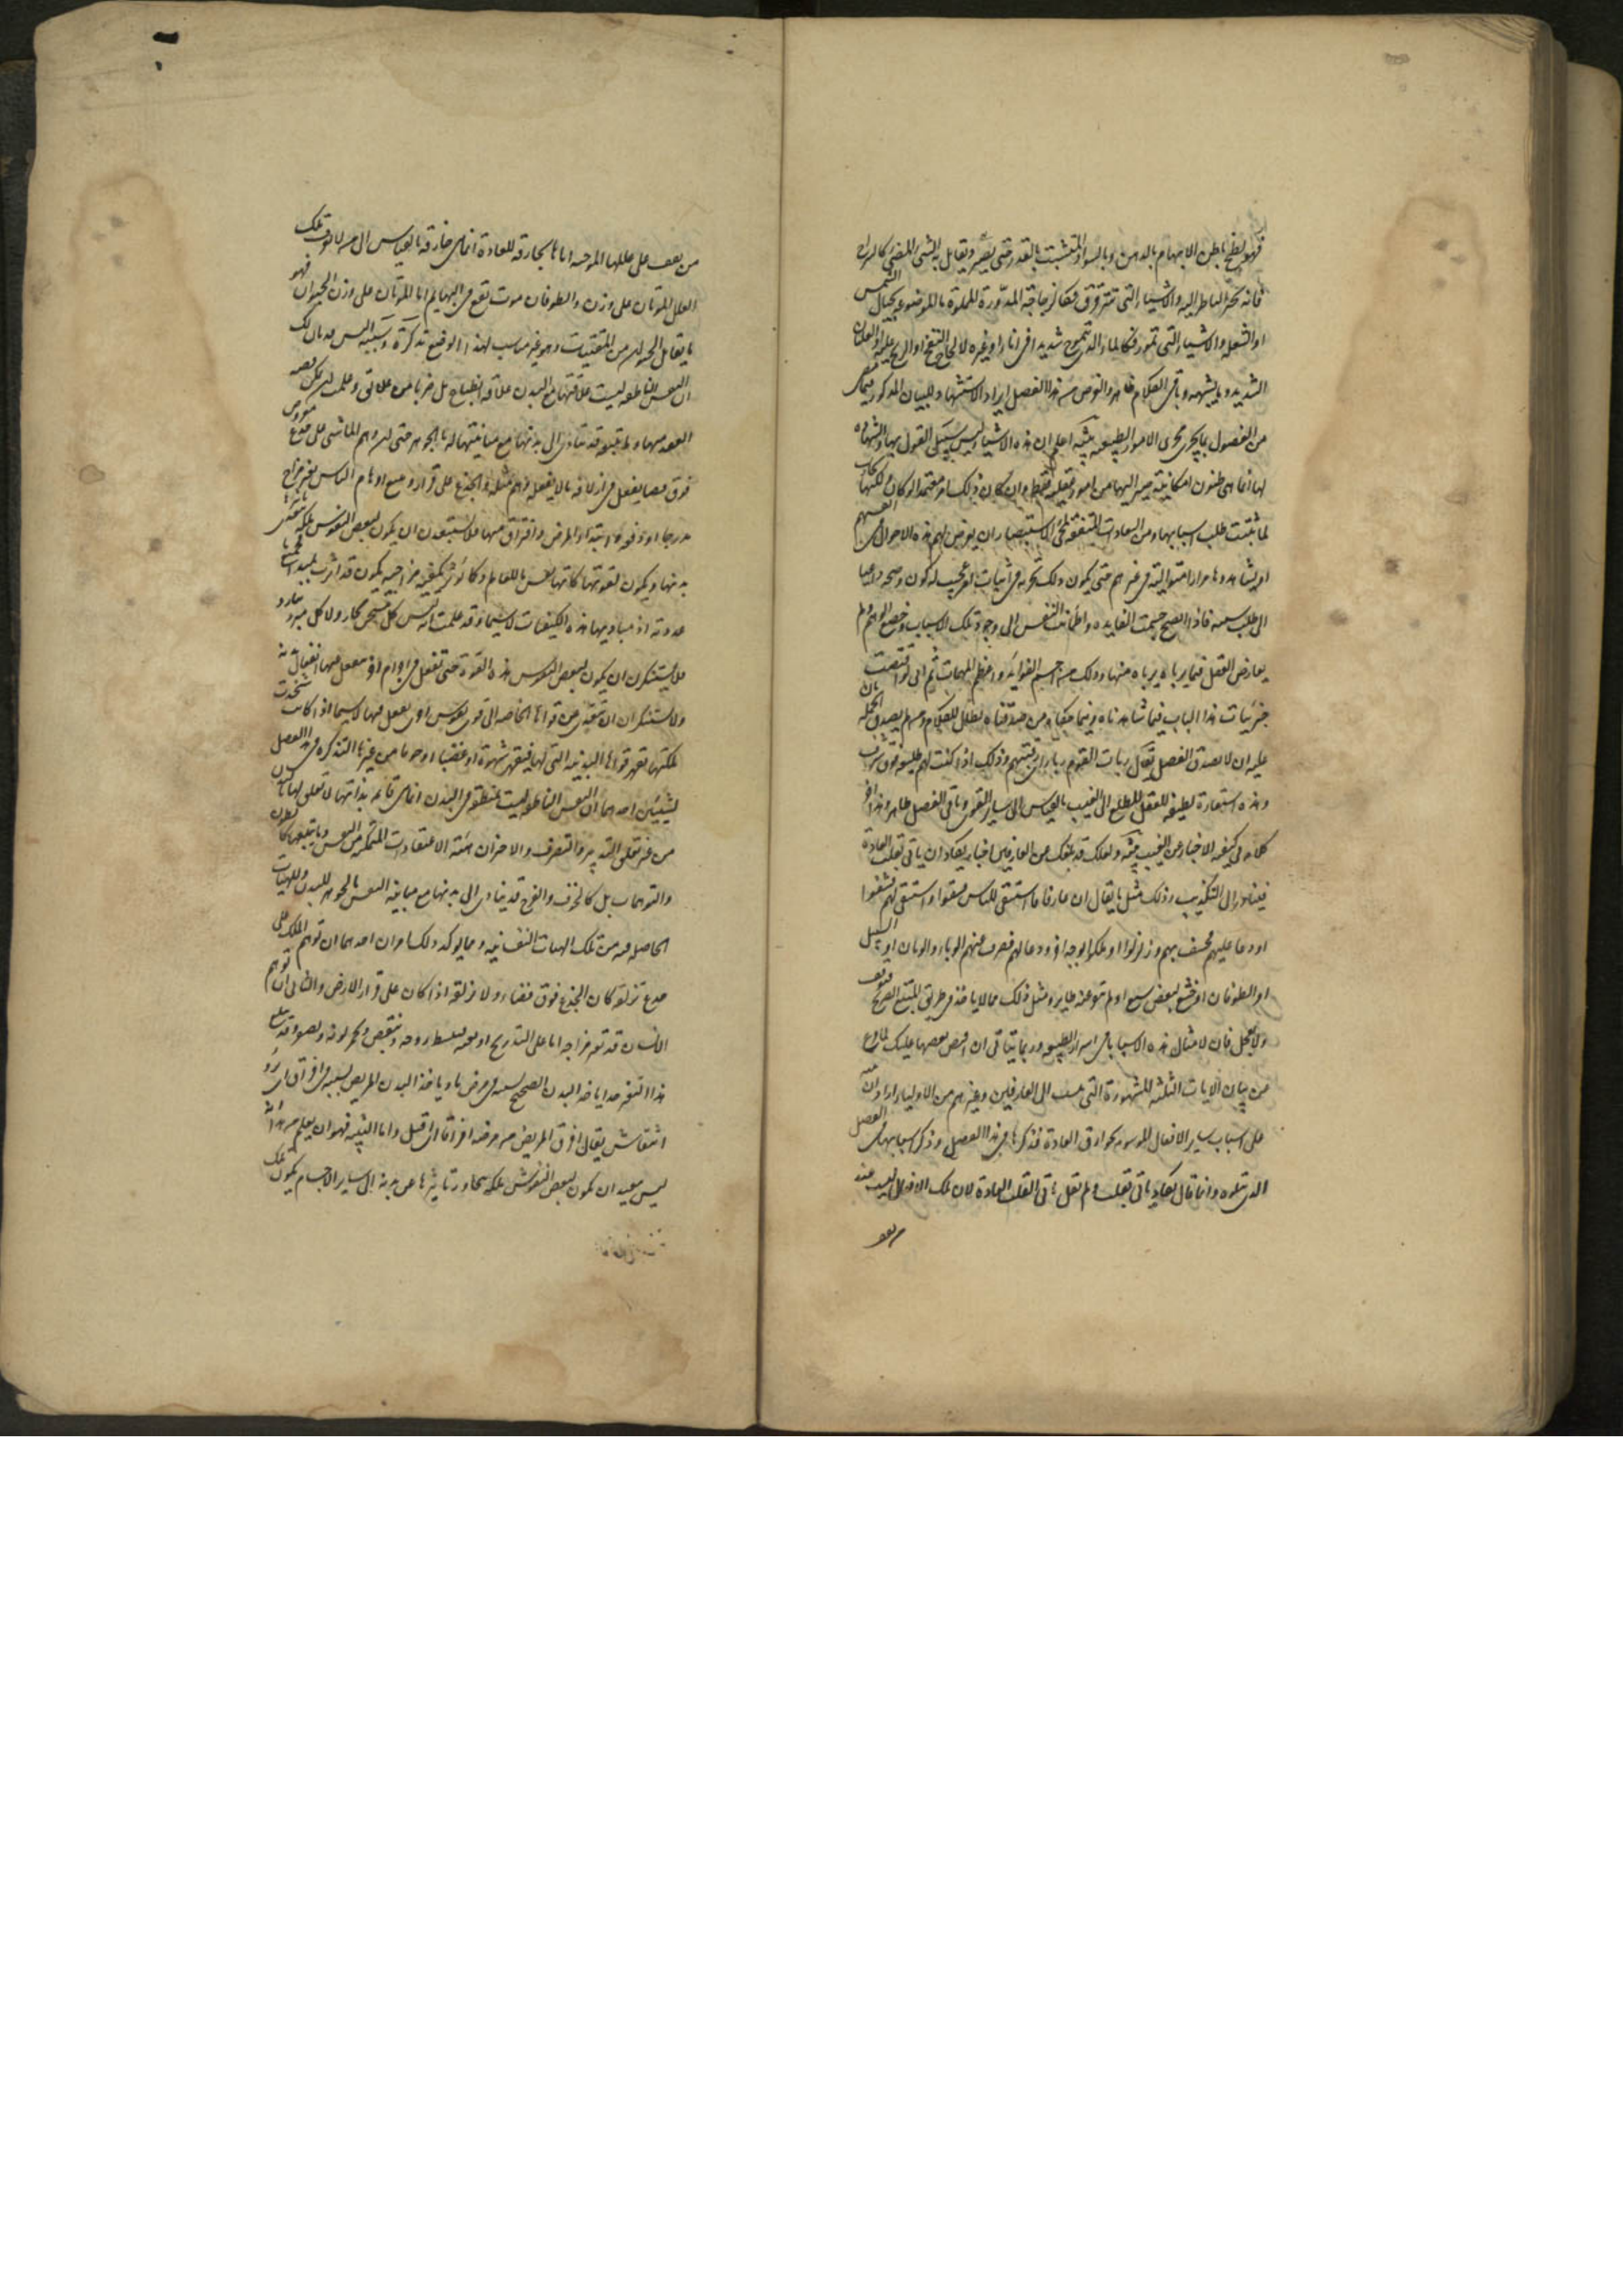 فهو لطخ باطن الابهام بالدهن وبالسواد المتشبث بالقدر حتى يصير ويقابل به الشئ المضئ كالسراج
فانه يحير الناظر اليه والاشياء التى تترقرق فكالزجاجة المدورة المملوة بالماء الموضوعة بحيال الشمس
او الشعلة والاشياء التى تمور فكالماء الذى يتموج شديدا فى اناء او غيره لالحاح النفخ او الريح عليه او الغليان
الشديد وما يشبهه وباقى الكلام ظاهر والغرض من هذا الفصل ايراد الاستشهاد للبيان المذكور فيما مضى
من الفصول بما يجرى مجرى الامور الطبيعية تنبيه اعلم ان هذه الاشياء ليس سبيل القول بها والشهادة
لها انما هى ظنون امكانية صير اليها من امور عقلية فقط وان كان ذلك امرا معتمدا لو كان ولكنها تجارب
لما ثبتت طلب اسبابها ومن السعادات المتفقة لمحبى الاستبصار ان يعرض لهم هذه الاحوال فى انفسهم
او يشاهدوها مرارا متوالية فى غيرهم حتى يكون ذلك تجربة فى اثبات امر عجيب له كون وصحة وداعيا
الى طلب سببه فاذا اتضح جسمت الفايدة واطمأنت النفس الى وجود تلك الاسباب وخضع الوهم ولم
يعارض العقل فيما يرباه يرباه منها وذلك من اجسم الفوايد واعظم المهمات ثم انى لو اقتصصت
جزئيات هذا الباب فيما شاهدناه وفيما حكاه من صدقناه لطال الكلام ومن لم يصدق الجملة هان
عليه ان لا يصدق التفصيل يقال ربأت القوم ربأ اى رقبتهم وذلك اذا كنت لهم طليعة فوق شرف
وهذه استعارة لطيفة للعقل المطلع الى الغيب بالقياس الى ساير القوى وباقى الفصل ظاهر وهذا آخر
كلامه فى كيفية الاخبار عن الغيب تنبيه ولعلك قد تبلغك عن العارفين اخبار يكاد ان ياتى بقلب العادة
فتبادر الى التكذيب وذلك مثل ما يقال ان عارفا استسقى للناس فسقوا او استشفى لهم فشفوا
او دعا عليهم فخسف بهم وزلزلوا او هلكوا بوجه آخر ودعا لهم فصرف عنهم الوباء والموتان او السيل
او الطوفان او خشع لبعضهم سبع او لم ينفر عنه طاير ومثل ذلك مما لا ياخذ فى طريق الممتنع الصريح فتوقف
ولا تعجل فان لامثال هذه الاسبابا فى اسرار الطبيعة وربما يتاتى ان اقص بعضها عليك لما فرغ
من بيان الايات الثلثة المشهورة التى تنسب الى العارفين وغيرهم من الاولياء اراد ان ينبه
على اسباب ساير الافعال الموسومة بخوارق العادة فذكرها فى هذا الفصل وذكر اسبابها فى الفصل
الذى يتلوه وانما قال يكاد ياتى بقلب ولم يقل ياتى بقلب العادة لان تلك الافعال ليست عند
من يقف
من يقف على عللها الموجبة اياها بخارقة للعادة انما هى خارقة بالقياس الى من لا يعرف تلك
العلل الموتان على وزن والطوفان موت يقع فى البهايم اما الموتان على وزن الحيوان فهو
ما يقابل الحيوان من المقتنيات وهو غير مناسب لهذا الموضع تذكرة وتنبيه اليس قد بان لك
ان النفس الناطقة ليست علاقتها مع البدن علاقة انطباع بل ضربا من علائق وعلمت ان تمكن هيئة
العقد منها وما يتبعه قد يتادى الى بدنها مع مباينتها له بالجوهر حتى ان وهم الماشى على جذع معروض
فوق فضا يفعل فى ازلاقه ما لا يفعله وهم مثله والجذع على قرار ويتبع اوهام الناس تغير مزاج
مدرجا او دفعة او ابتداء امراض وافراق منها فلا تستبعدن ان يكون لبعض النفوس ملكة يتعدى تاثيرها
بدنها ويكون لقوتها كانها نفس ما للعالم وكما تؤثر بكيفية مزاجية يكون قد اثرت بمبدأ لجميع ما
عددته اذ مباديها هذه الكيفيات لا سيما وقد علمت انه ليس كل مسخن بحار ولا كل مبرد ببارد
فلا تستنكرن ان يكون لبعض النفوس هذه القوة حتى تفعل فى اجرام اخر تنفعل عنها انفعال بدنه
ولا تستنكرن ان تتعدى من قواها الخاصة الى قوى نفوس اخرى تفعل فيها لا سيما اذا كانت شحذت
ملكتها بقهر قواها البدنية التى لها فيقهر شهوة او غضبا او خوفا من غيرها التذكرة فى هذا الفصل
لشيئين احدهما ان النفس الناطقة ليست بمنطبعة فى البدن انما هى قائمة بذاتها لا تعلق لها بالبدن
من غير تعلق التدبير والتصرف والاخر ان هيئة الاعتقادات المتمكنة من النفس وما يتبعها كالظنون
والتوهمات بل كالخوف والفرح قد يتادى الى بدنها مع مباينة النفس بالجوهر للبدن وللهيئات
الحاصلة فيه من تلك الهيئات النفسانية ومما يؤكد ذلك امران احدهما ان توهم الماشى على
جذع يزلقه كان الجذع فوق فضاء ولا يزلقه اذا كان على قرار الارض والثانى ان توهم
الانسان قد يغير مزاجه اما على التدريج او بغتة فينبسط روحه وينقبض ويحمر لونه ويصفر وقد يبلغ
هذا التغير حدا ياخذ البدن الصحيح بسببه فى مرض ما وياخذ البدن المريض بسببه فى افراق اى برؤ
وانتعاش يقال افرق المريض من مرضه افراقا اى اقبل واما التنبيه فهو ان يعلم من هذا انه
ليس ببعيد ان يكون لبعض النفوس ملكة يتجاوز تاثيرها عن بدنه الى ساير الاجسام يكون تلك